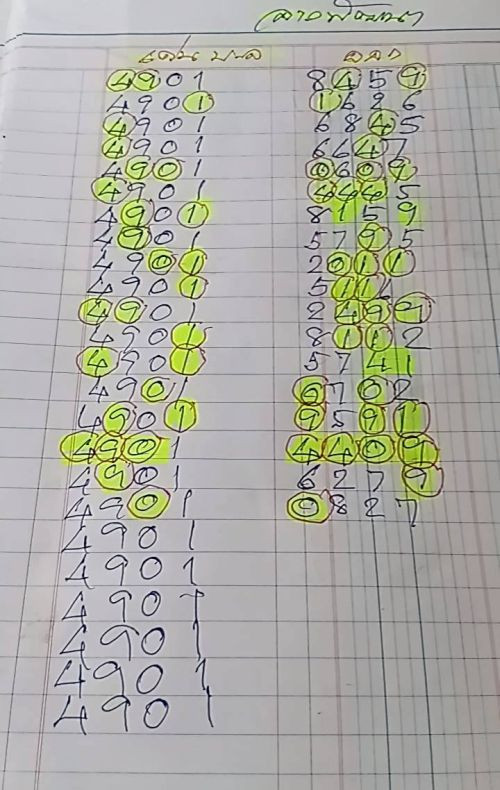 ลาวพัฒนา
เด่น บน ล่าง ออก
4901 8459
4901 1626
4901 6845
4901 6647
4901 0609
4901 4445
4901 8159
4901 5795
4901 2011
4901 511
4901 2499
4901 8112
4901 5741
4901 6702
4901 9591
4901 4409
4901 6279
4901 9827
4901
4901
4901
4901
4901
4901